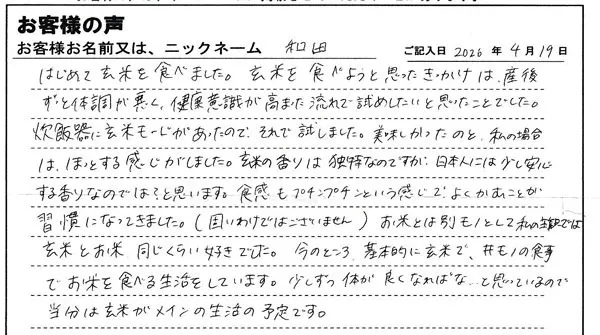 お客様の声
お客様お名前又は、ニックネーム 和田 ご記入日 2026 年 4 月 19 日
はじめて玄米を食べました。玄米を食べようと思ったきっかけは、産後
ずっと体調が悪く、健康意識が高また流れで試めしたいと思ったことでした。
炊飯器に玄米モードがあったので、それで試しました。美味しかったのと、私の場合
は、ほっとする感じがしました。玄米の香りは独特なのですが、日本人には少し安心
する香りなのでは?と思います。食感もプチンプチンという感じで、よくかむことが
習慣になってきました。(固いわけではございません) お米とは別モノとして私の では
玄米とお米 同じくらい好きでした。今のところ、基本的に玄米で、丼モノの食事
でお米を食べる生活をしています。少しずつ体が良くなればな…と思っているので
当分は玄米がメインの生活の予定です。